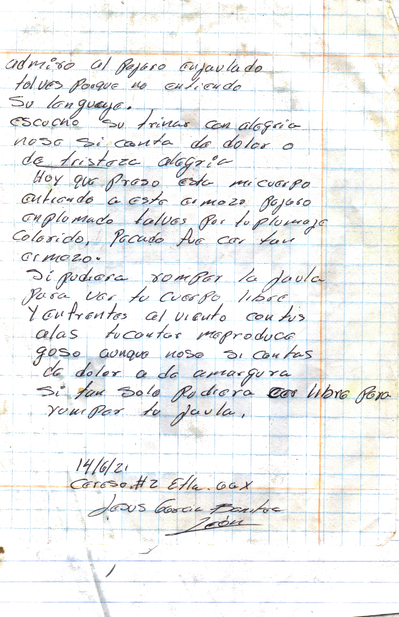 admiro al pajaro enjaulado
talves porque no entiendo
su lenguaje.
escucho su trinar con alegria
nose si canta de dolor o
de tristeza alegria
Hoy que preso esta mi cuerpo
entiendo a este ermozo pajaro
enplumado talves por tu plumaje
colorido, Pecado fue cer tan
ermozo.
si pudiera romper la jaula
para ver tu cuerpo libre
Y enfrentes al viento con tus
alas tu cantar me produce
goso aunque nose si cantas
de dolor o de amargura
si tan solo pudiera cer libre para
romper tu jaula.
14/6/21
Cereso #2 Etla. oax
Jesus Garcia Benitez
León